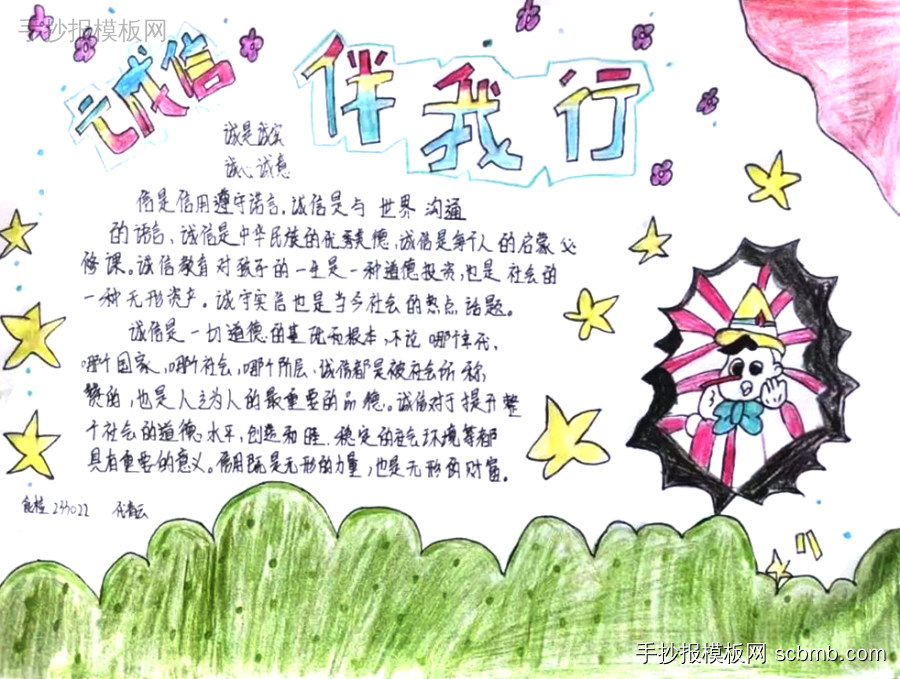 手抄报模板网
诚信
伴我行
诚是诚实
诚心诚意
信是信用遵守诺言。诚信是与 世界 沟通
的语言、诚信是中华民族的优秀美德,诚信是每个人的启蒙必
修课。诚信教育对孩子的一生是一种道德投资,也是社会的
一种无形资产。诚守实信也是当今社会的热点话题。
诚信是一切道德的基础和根本,不论哪个年代,
哪个国家,哪个社会,哪个阶层。诚信都是被社会所称
赞的,也是人之为人的最重要的品德。诚信对于提升整
个社会的道德水平,创造和睦、稳定的社会环境等都
具有重要的意义。信用既是无形的力量,也是无形的财富。
233022
手抄报模板网 scbmb.com